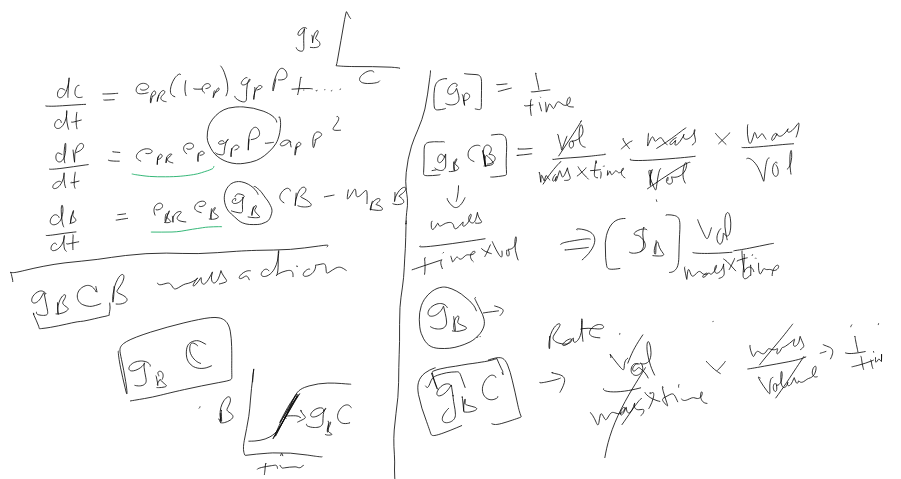 g_B
C
dc/dt = e_PR (1-e_P) g_P P + ....
dP/dt = e_PR e_P g_P P - a_P P^2
dB/dt = e_BR e_B g_B CB - m_B B
g_B C B mass action
g_B C
B → g_B C
time
[g_P] = 1/time
[g_B CB] = Vol/mass×time × mass/Vol × mass/Vol
↓
mass/time×vol ⇒ [g_B] Vol/mass×time
g_B →
Rate.
[g_B C] → Vol/mass×time × mass/Volume → 1/tim